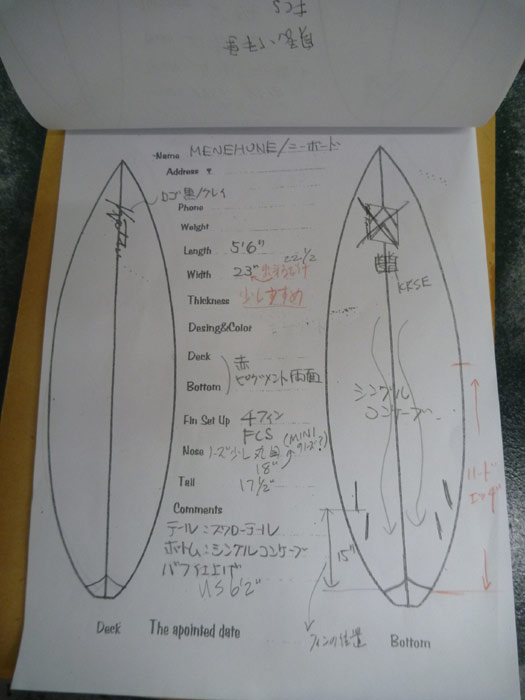 FCS
Name MENEHUNE/ニーボード
Address 〒
ロゴ 黒/グレイ
Phone
Weight
Length 5'6"
22 1/2
Width 23"
Thickness 少しすすめ
KRSE
Desing&Color
Deck 赤
Bottom ピグメント両面
シングル
コンケーブ
Fin Set Up 4フィン
FCS
(MINI
Nose ノーズ少し丸目
18"
Tail 17 1/2"
ハード
エッヂ
Comments
テール:スワローテール
ボトム:シングルコンケーブ
バフ仕上げ
US 6'2"
15"
フィンの位置
Deck The apointed date Bottom